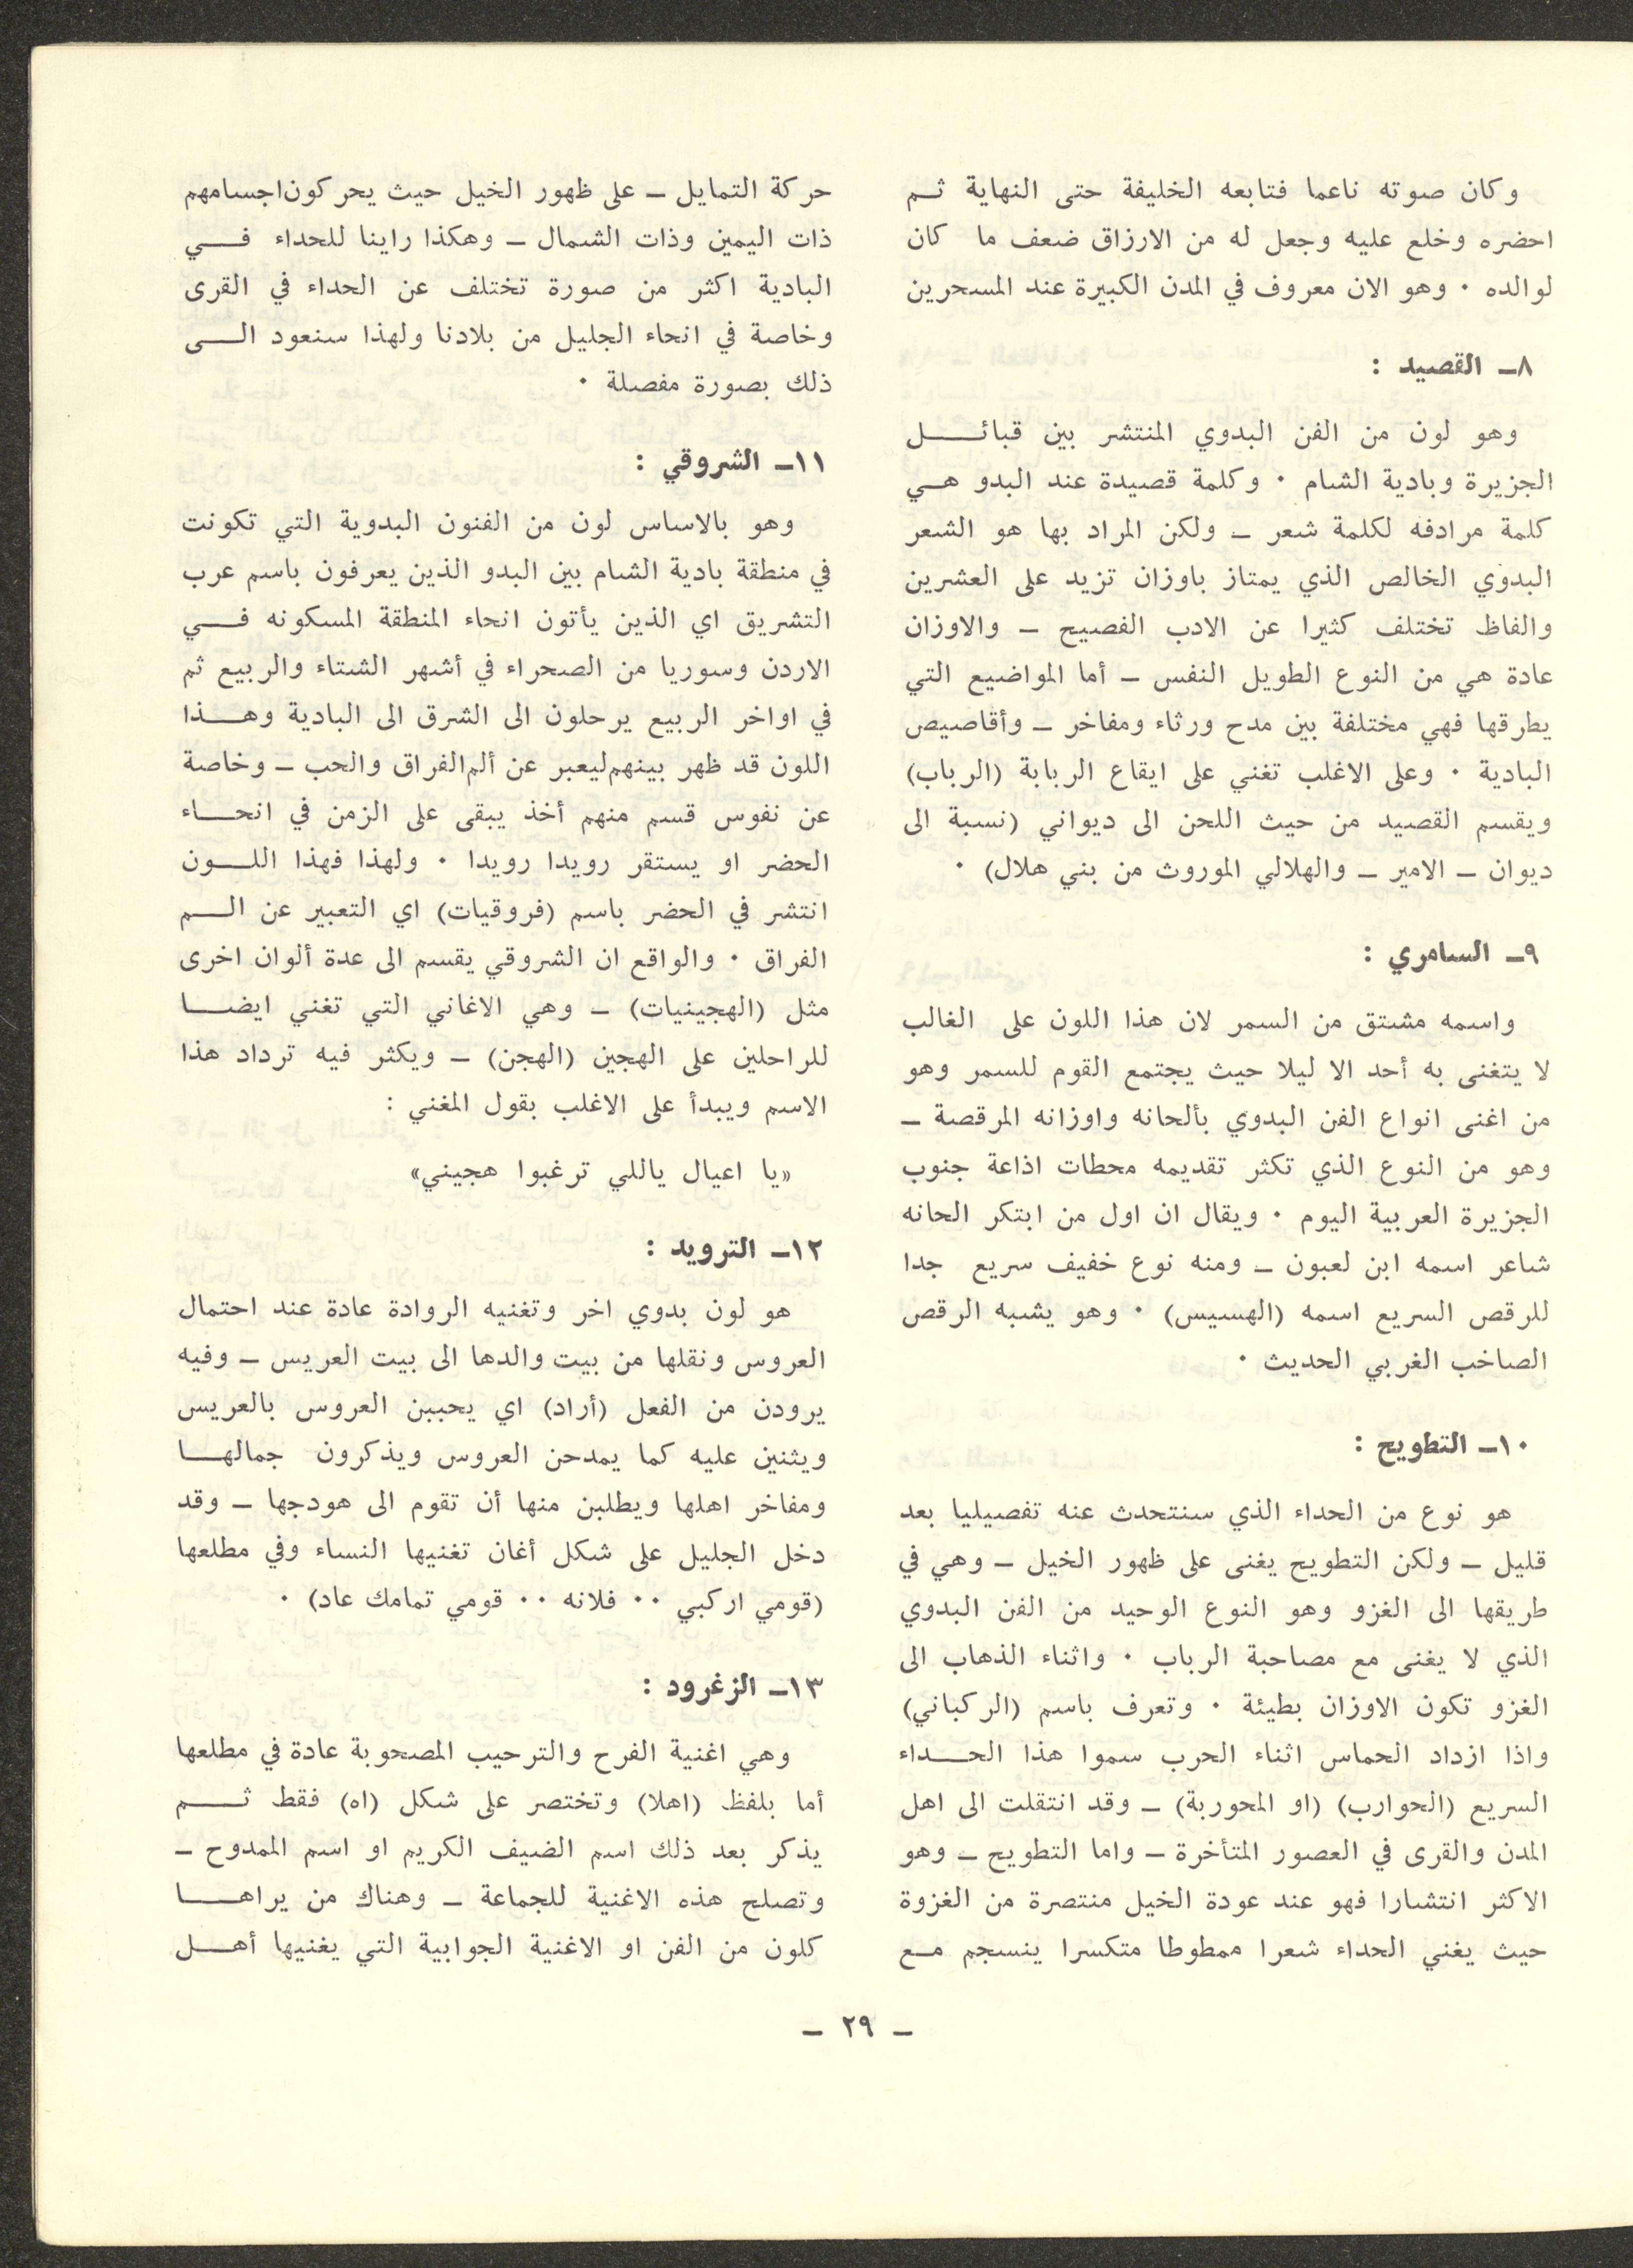 وكان صوته ناعما فتابعه الخليفة حتى النهاية ثم
احضره وخلع عليه وجعل له من الارزاق ضعف ما كان
لوالده . وهو الان معروف في المدن الكبيرة عند المسحرين
٨ـ القصيد :
وهو لون من الفن البدوي المنتشر بين قبائل
الجزيرة وبادية الشام . وكلمة قصيدة عند البدو هي
كلمة مرادفه لكلمة شعر ـ ولكن المراد بها هو الشعر
البدوي الخالص الذي يمتاز باوزان تزيد على العشرين
والفاظ تختلف كثيرا عن الادب الفصيح ـ والاوزان
عادة هي من النوع الطويل النفس ـ أما المواضيع التي
يطرقها فهي مختلفة بين مدح ورثاء ومفاخر ـ وأقاصيص
البادية . وعلى الاغلب تغني على ايقاع الربابة (الرباب)
ويقسم القصيد من حيث اللحن الى ديواني (نسبة الى
ديوان ـ الامير ـ والهلالي الموروث من بني هلال) .
٩ـ السامري :
واسمه مشتق من السمر لان هذا اللون على الغالب
لا يتغنى به أحد الا ليلا حيث يجتمع القوم للسمر وهو
من اغنى انواع الفن البدوي بألحانه واوزانه المرقصة ـ
وهو من النوع الذي تكثر تقديمه محطات اذاعة جنوب
الجزيرة العربية اليوم . ويقال ان اول من ابتكر الحانه
شاعر اسمه ابن لعبون ـ ومنه نوع خفيف سريع جدا
للرقص السريع اسمه (الهسيس) . وهو يشبه الرقص
الصاخب الغربي الحديث .
١٠ـ التطويح :
هو نوع من الحداء الذي سنتحدث عنه تفصيليا بعد
قليل ـ ولكن التطويح يغنى على ظهور الخيل ـ وهي في
طريقها الى الغزو وهو النوع الوحيد من الفن البدوي
الذي لا يغنى مع مصاحبة الرباب . واثناء الذهاب الى
الغزو تكون الاوزان بطيئة . وتعرف باسم (الركباني)
واذا ازداد الحماس اثناء الحرب سموا هذا الحداء
السريع (الحوارب) (او المحوربة) ـ وقد انتقلت الى اهل
المدن والقرى في العصور المتأخرة ـ واما التطويح ـ وهو
الاكثر انتشارا فهو عند عودة الخيل منتصرة من الغزوة
حيث يغني الحداء شعرا ممطوطا متكسرا ينسجم مع
حركة التمايل ـ على ظهور الخيل حيث يحركون اجسامهم
ذات اليمين وذات الشمال ـ وهكذا راينا للحداء في
البادية اكثر من صورة تختلف عن الحداء في القرى
وخاصة في انحاء الجليل من بلادنا ولهذا سنعود الى
ذلك بصورة مفصلة .
١١ـ الشروقي :
وهو بالاساس لون من الفنون البدوية التي تكونت
في منطقة بادية الشام بين البدو الذين يعرفون باسم عرب
التشريق اي الذين يأتون انحاء المنطقة المسكونه في
الاردن وسوريا من الصحراء في أشهر الشتاء والربيع ثم
في اواخر الربيع يرحلون الى الشرق الى البادية وهذا
اللون قد ظهر بينهم ليعبر عن ألم الفراق والحب ـ وخاصة
عن نفوس قسم منهم أخذ يبقى على الزمن في انحاء
الحضر او يستقر رويدا رويدا . ولهذا فهذا اللون
انتشر في الحضر باسم (فروقيات) اي التعبير عن الم
الفراق . والواقع ان الشروقي يقسم الى عدة ألوان اخرى
مثل (الهجينيات) ـ وهي الاغاني التي تغني ايضا
للراحلين على الهجين (الهجن) ـ ويكثر فيه ترداد هذا
الاسم ويبدأ على الاغلب بقول المغني :
«يا اعيال ياللي ترغبوا هجيني»
١٢ـ الترويد :
هو لون بدوي اخر وتغنيه الروادة عادة عند احتمال
العروس ونقلها من بيت والدها الى بيت العريس ـ وفيه
يرودن من الفعل (أراد) اي يحببن العروس بالعريس
ويثنين عليه كما يمدحن العروس ويذكرون جمالها
ومفاخر اهلها ويطلبن منها أن تقوم الى هودجها ـ وقد
دخل الجليل على شكل أغان تغنيها النساء وفي مطلعها
(قومي اركبي .. فلانه .. قومي تمامك عاد) .
١٣ـ الزغرود :
وهي اغنية الفرح والترحيب المصحوبة عادة في مطلعها
أما بلفظ (اهلا) وتختصر على شكل (اه) فقط ثم
يذكر بعد ذلك اسم الضيف الكريم او اسم الممدوح ـ
وتصلح هذه الاغنية للجماعة ـ وهناك من يراها
كلون من الفن او الاغنية الجوابية التي يغنيها أهل
ـ ٢٩ ـ